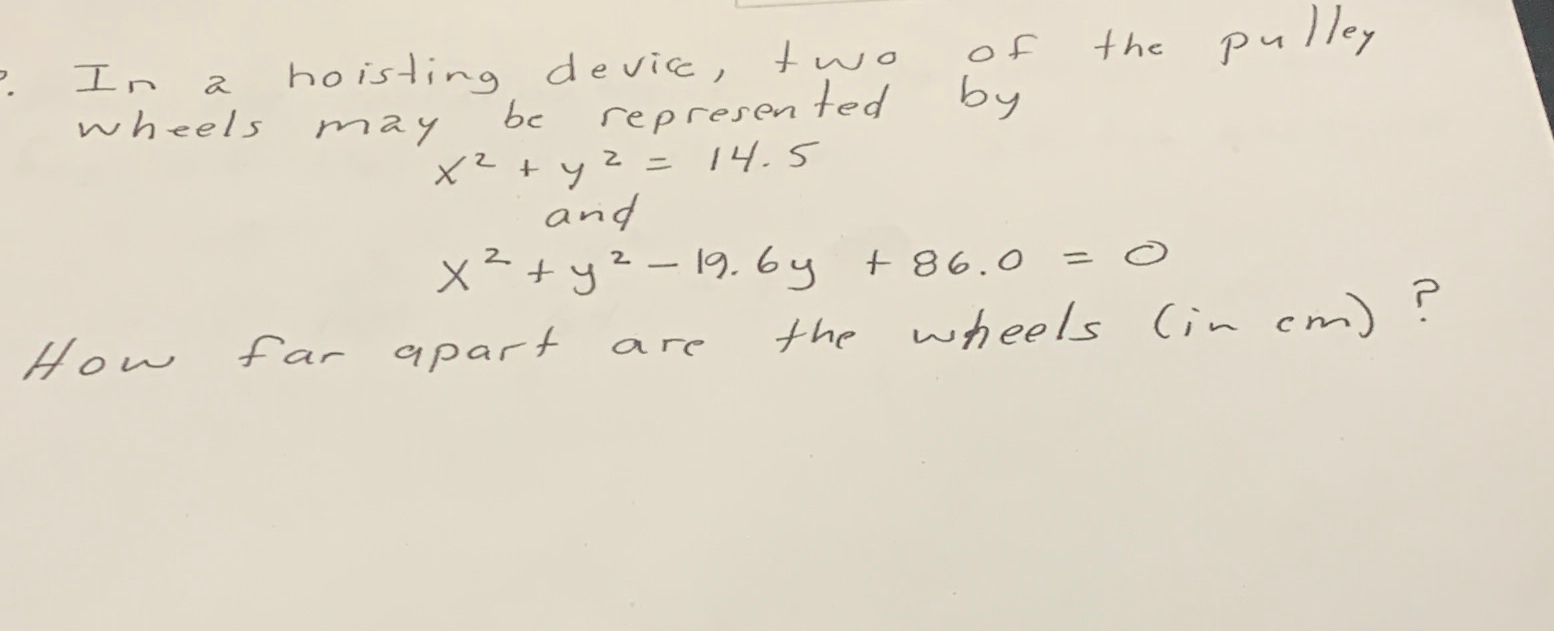 . In a hoisting device, two of the pulley
wheels may be represented by
x² + y² = 14.5
and
x² + y² - 19.6y + 86.0 = 0
How far apart are the wheels (in cm)?